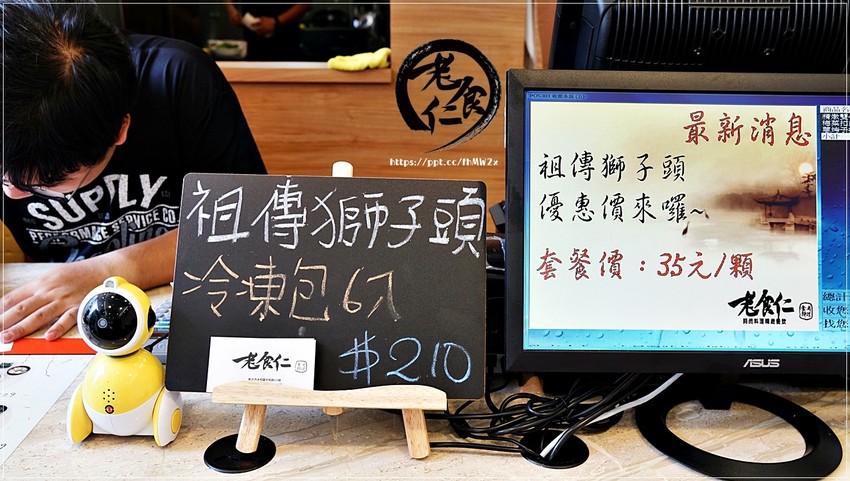 老食仁
https://ppt.cc/fhMW2x
SUPPLY
PERFORMANCE SERVICE CO
祖傳獅子頭
冷凍包6入
$210
老食仁
最新消息
祖傳獅子頭
優惠價來囉~
套餐價：35元/顆
老食仁
ASUS
總計
收您
找您